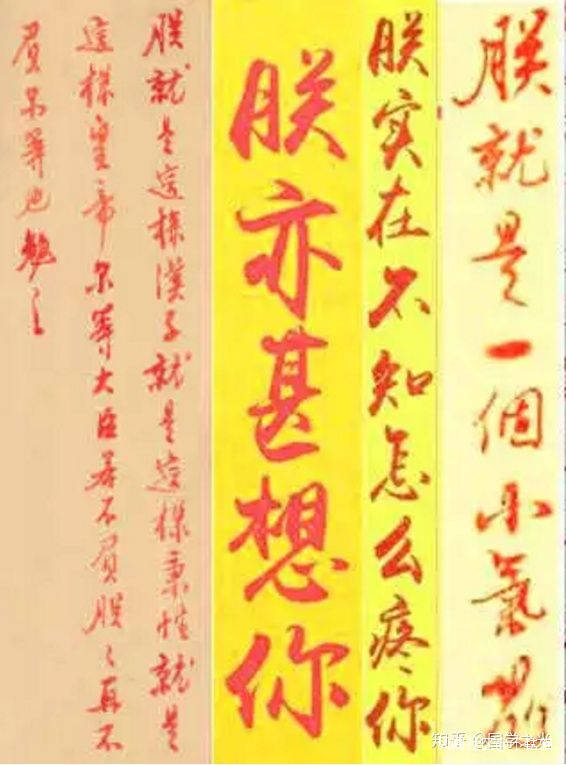 朕就是一個小氣
朕实在不知怎么疼你
朕亦甚想你
朕就是這樣漢子就是這樣秉性就是
這樣皇帝尔等大臣若不負朕〻再不
負尔等也勉之
知乎